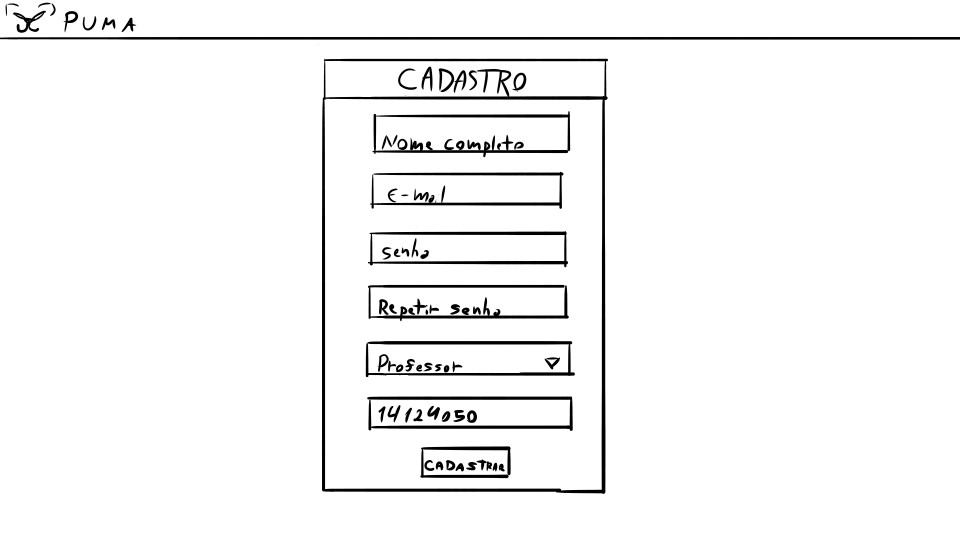 PUMA
CADASTRO
Nome completo
E-mail
senha
Repetir senha
Professor
14124050
CADASTRAR